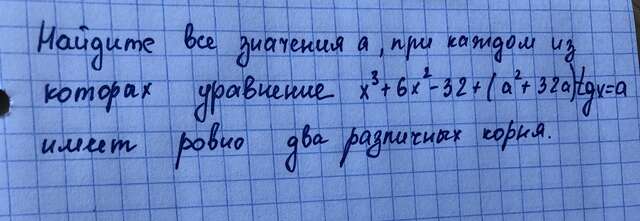 Найдите все значения a, при каждом из
которых уравнение x³+6x²-32+(a²+32a)tgx=a
имеет ровно два различных корня.